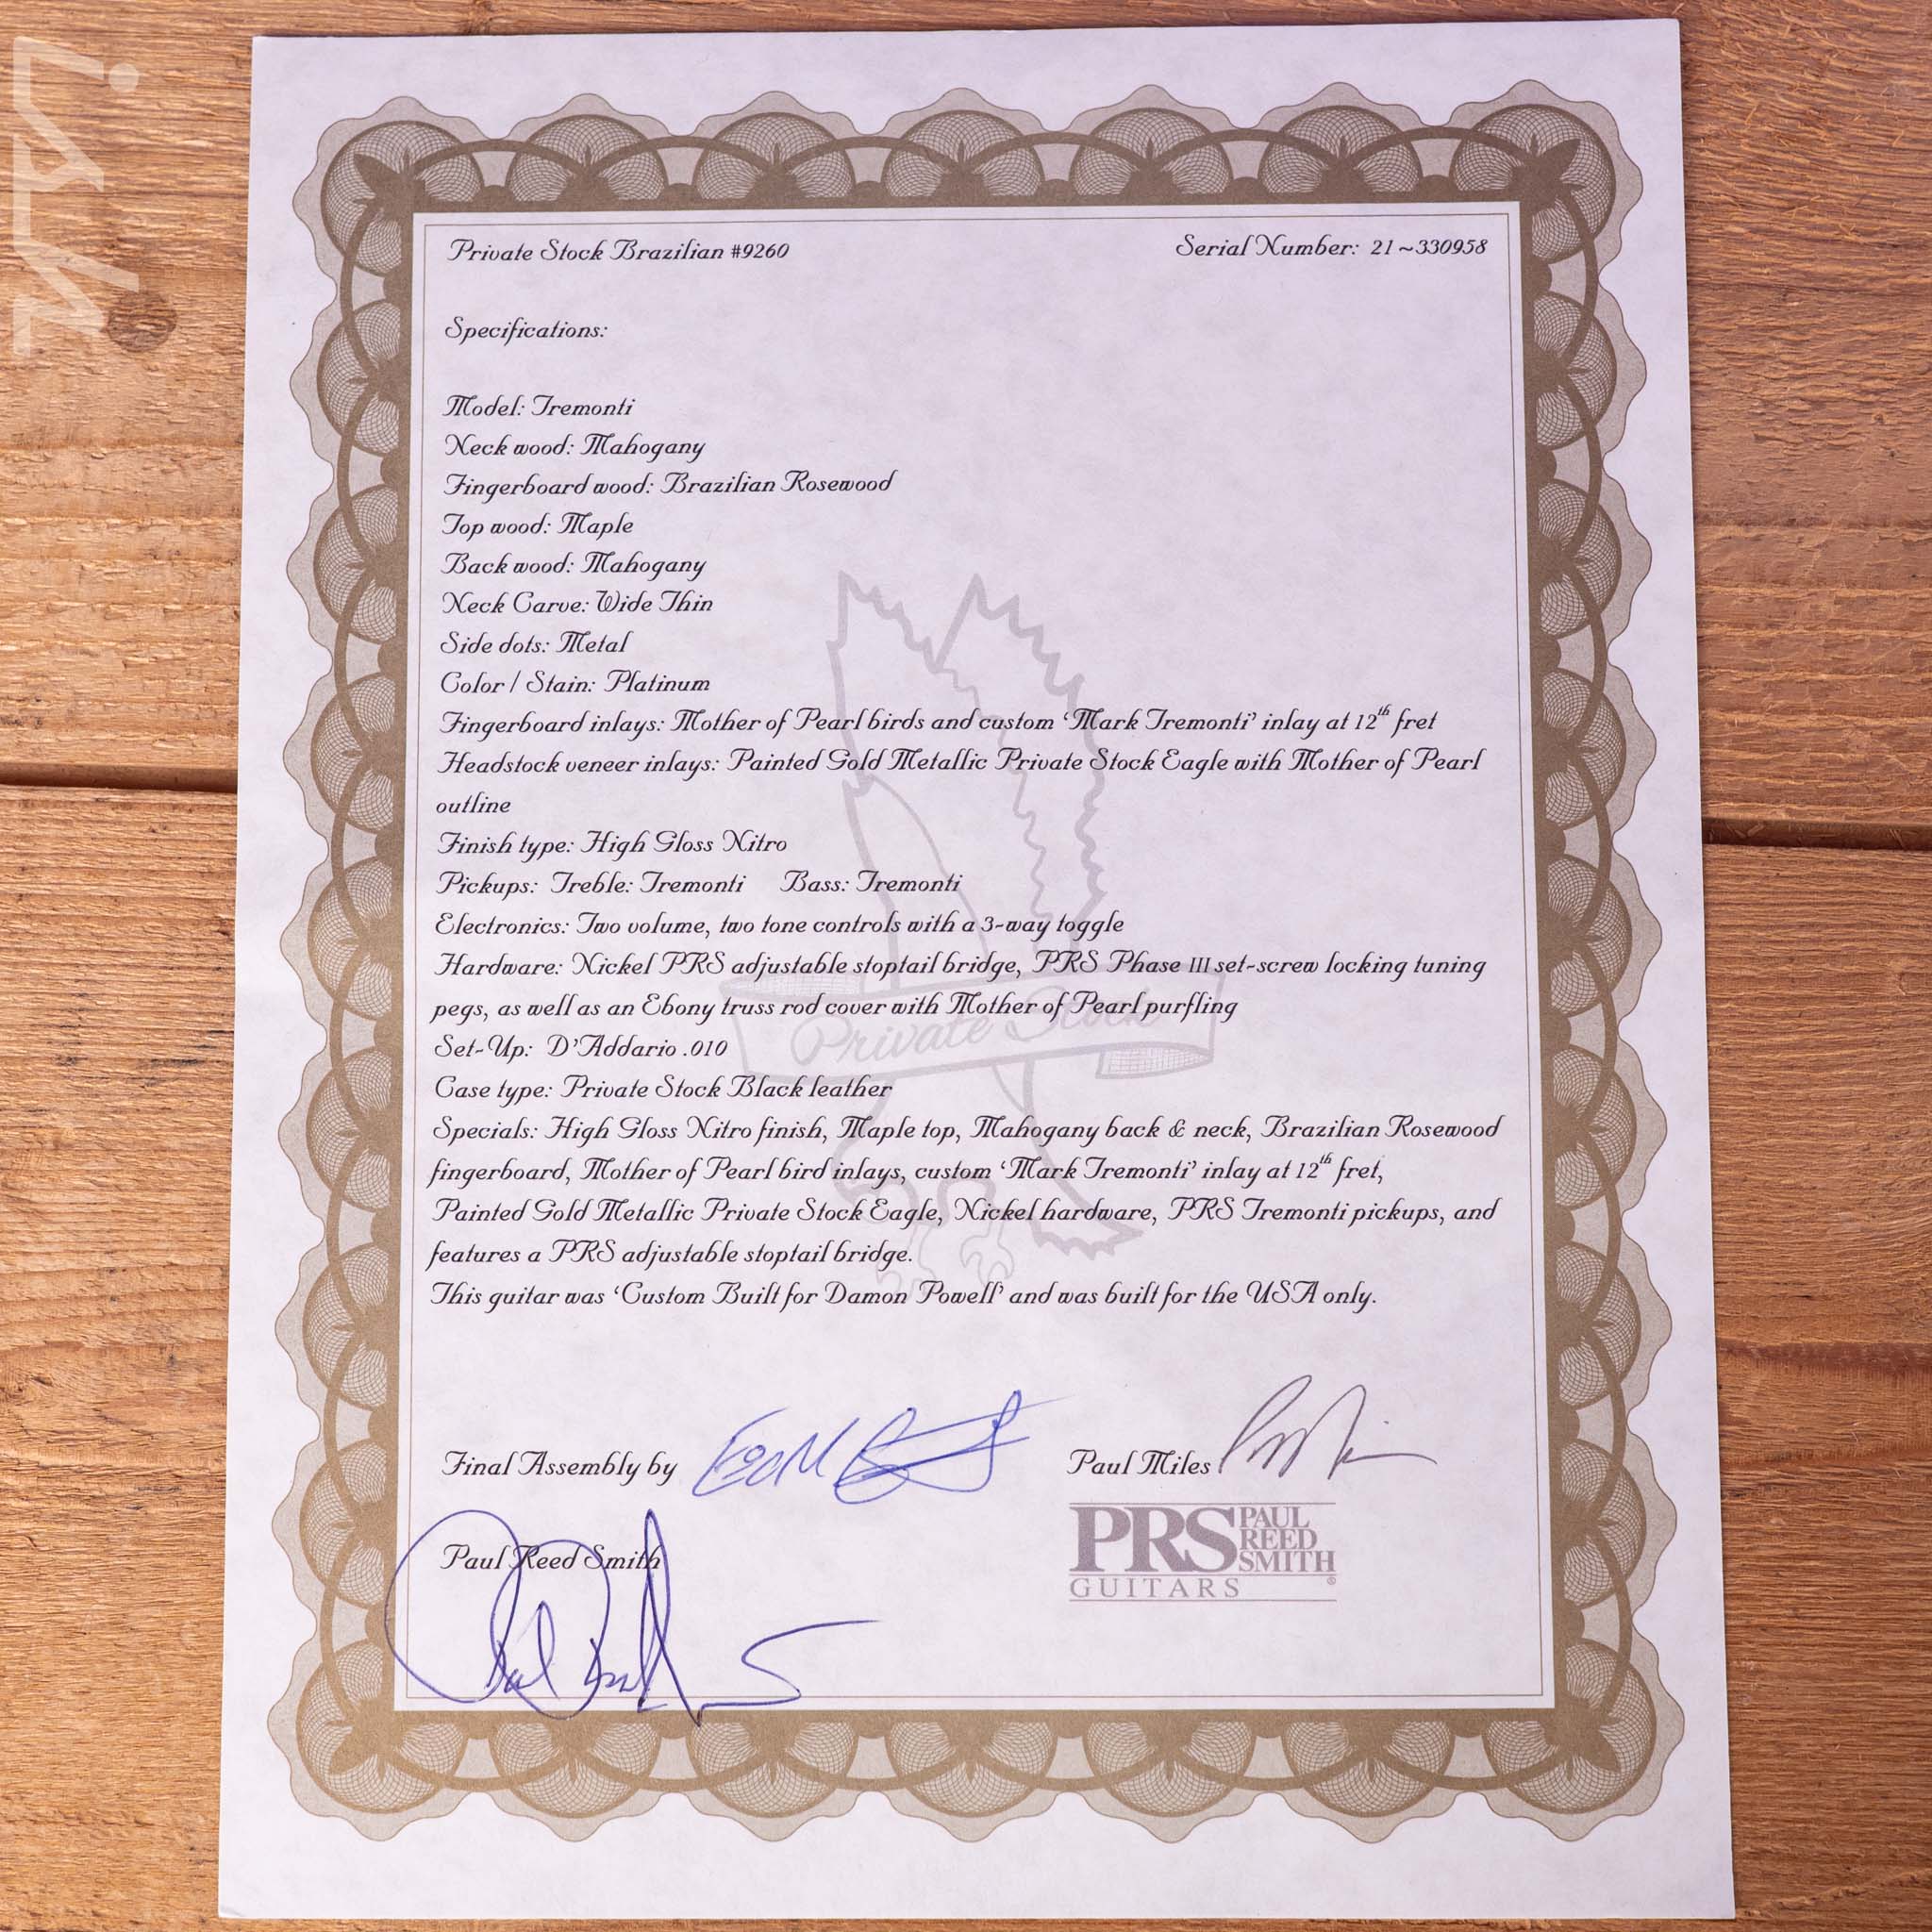 Private Stock Brazilian #9260 Serial Number: 21~330958
Specifications:
Model: Tremonti
Neck wood: Mahogany
Fingerboard wood: Brazilian Rosewood
Top wood: Maple
Back wood: Mahogany
Neck Carve: Wide Thin
Side dots: Metal
Color / Stain: Platinum
Fingerboard inlays: Mother of Pearl birds and custom ‘Mark Tremonti’ inlay at 12th fret
Headstock veneer inlays: Painted Gold Metallic Private Stock Eagle with Mother of Pearl
outline
Finish type: High Gloss Nitro
Pickups: Treble: Tremonti Bass: Tremonti
Electronics: Two volume, two tone controls with a 3-way toggle
Hardware: Nickel PRS adjustable stoptail bridge, PRS Phase III set-screw locking tuning
pegs, as well as an Ebony truss rod cover with Mother of Pearl purfling
Private Stock
Set-Up: D’Addario .010
Case type: Private Stock Black leather
Specials: High Gloss Nitro finish, Maple top, Mahogany back & neck, Brazilian Rosewood
fingerboard, Mother of Pearl bird inlays, custom ‘Mark Tremonti’ inlay at 12th fret,
Painted Gold Metallic Private Stock Eagle, Nickel hardware, PRS Tremonti pickups, and
features a PRS adjustable stoptail bridge.
This guitar was ‘Custom Built for Damon Powell’ and was built for the USA only.
Final Assembly by
Paul Miles
Paul Reed Smith
PRS PAUL
REED
SMITH
GUITARS ®